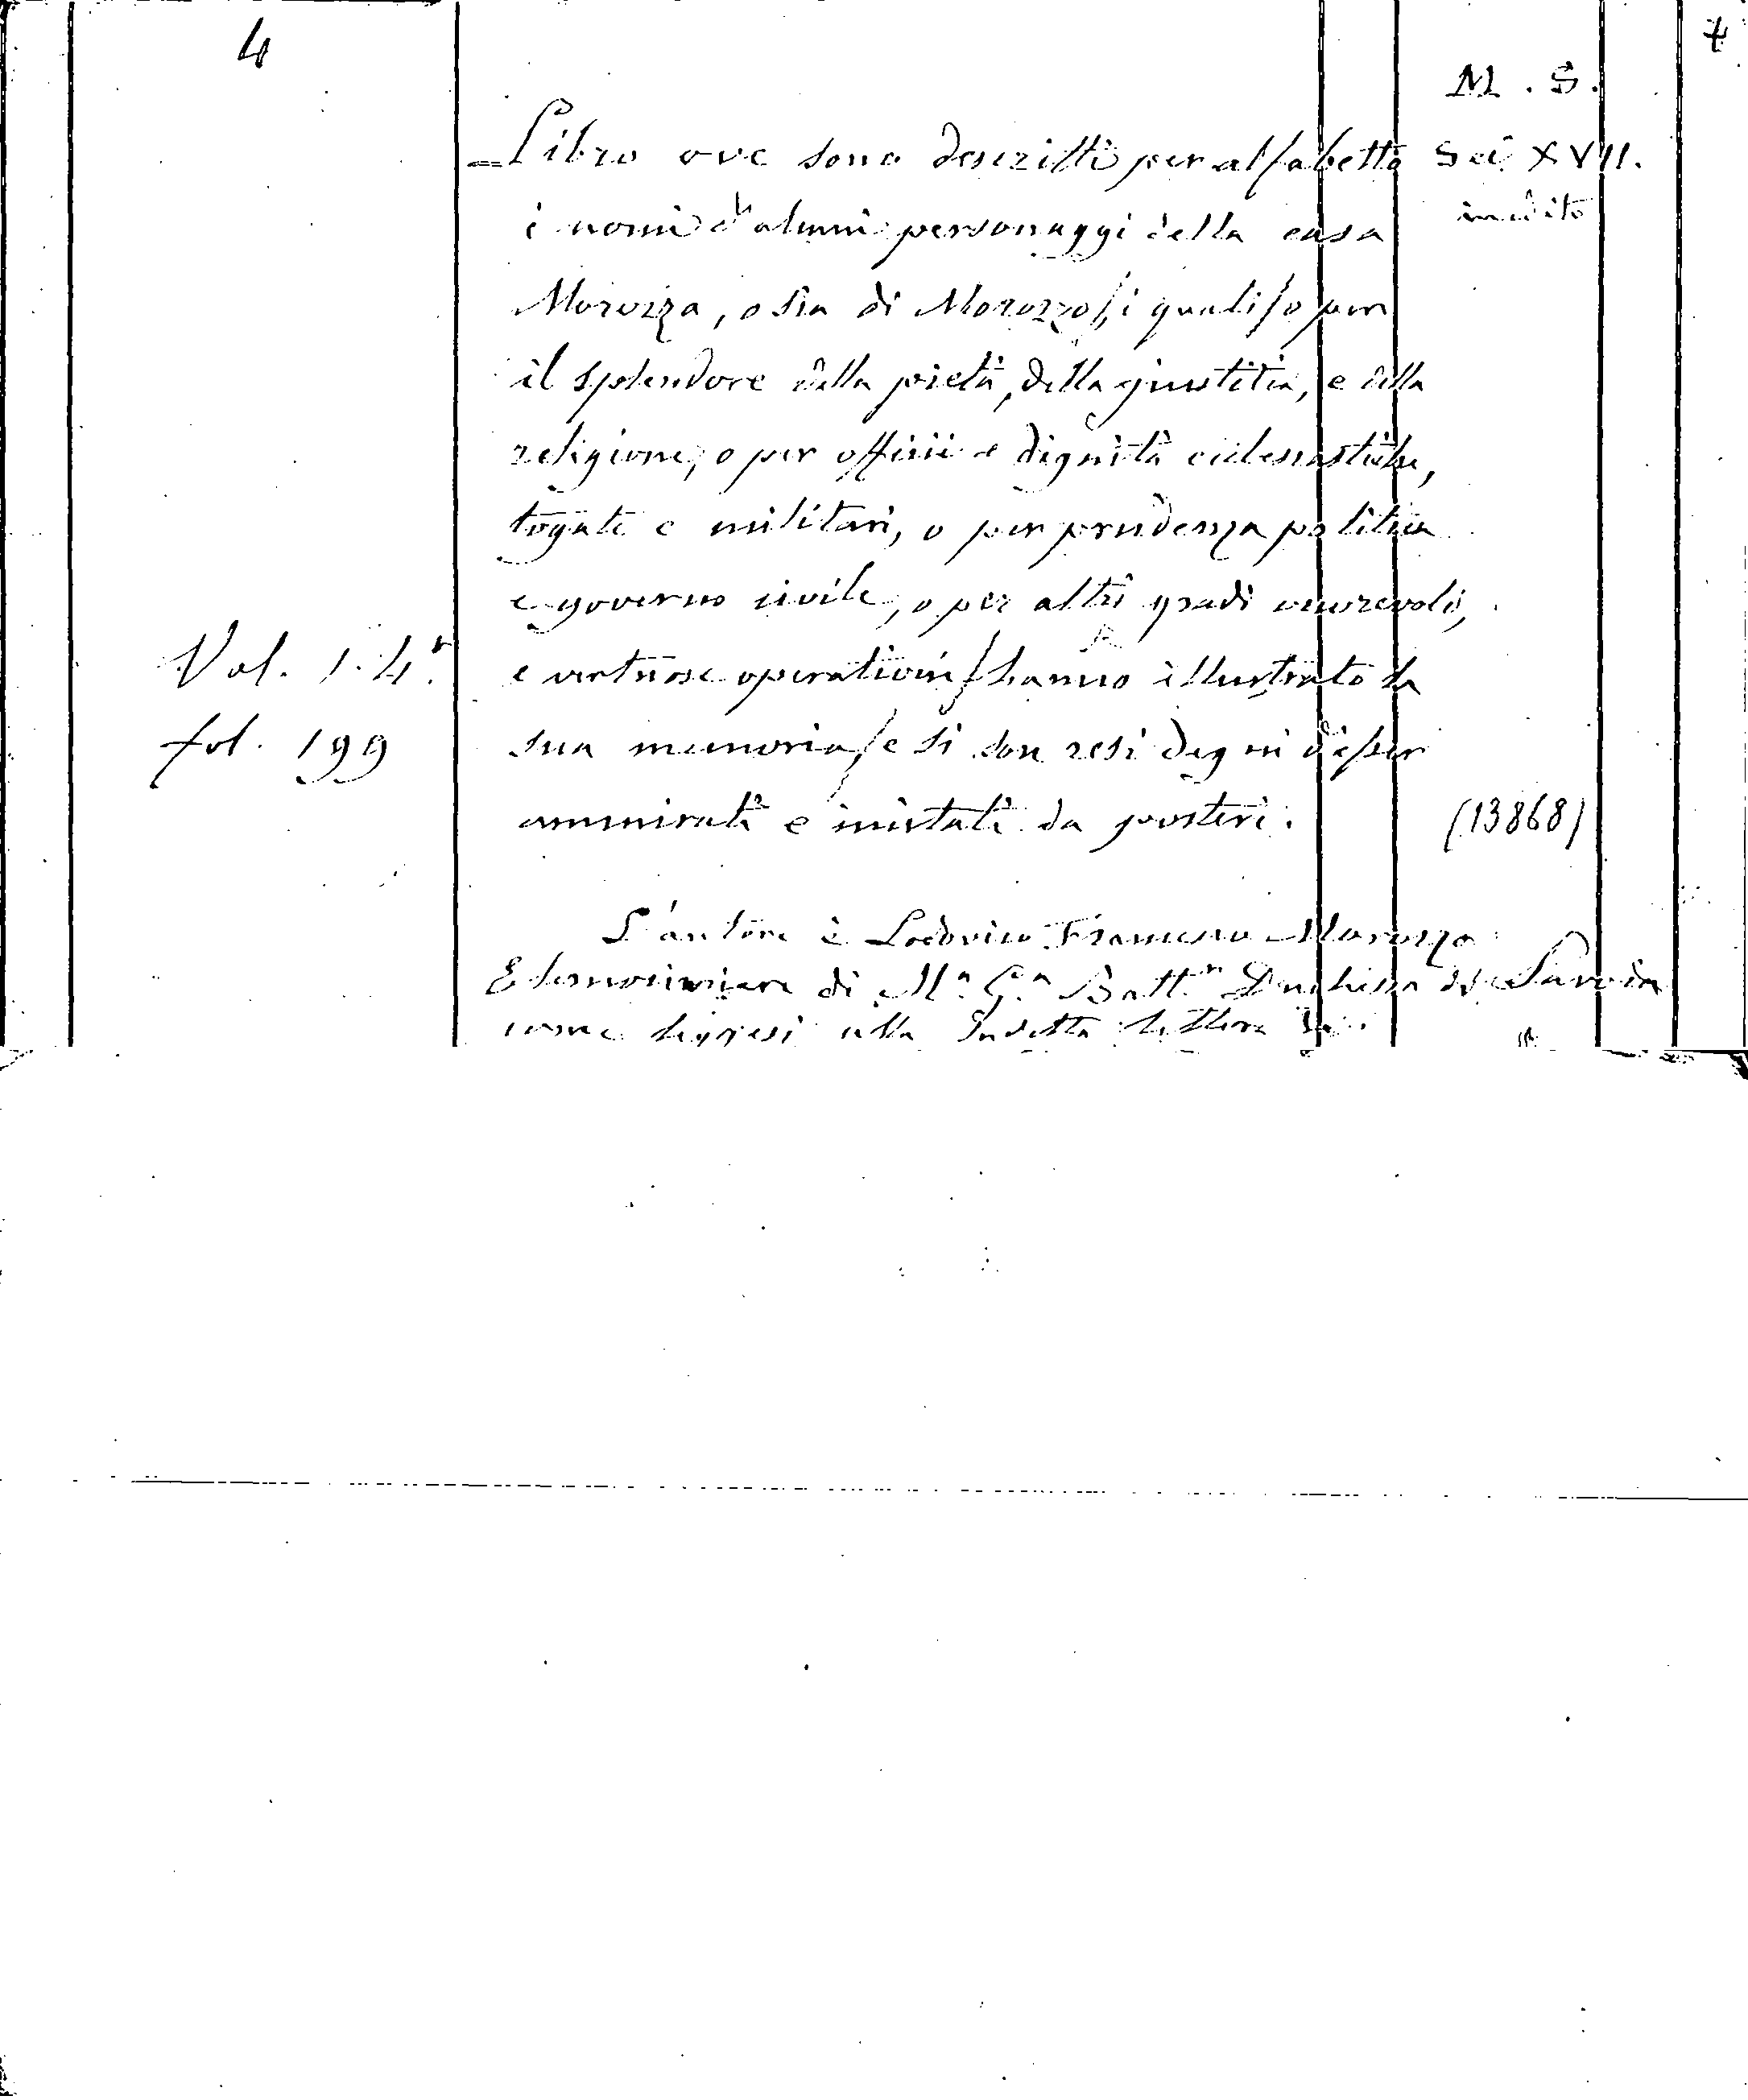 4
M. S.
Libro ove sono descritti per alfabetto
Sec. XVII.
i nomi d'alcuni personaggi della casa
inedito
Morozza, o sia di Morozzo, i quali, o per
il splendore della pietà, della giustitia, e della
religione, o per officii e dignità eclesiastiche,
togate e militari, o per prudenza politica
e governo civile, o per altri gradi onorevoli,
e virtuose operationi, hanno illustrato la
Vol. 1. 4°.
sua memoria, e si son resi degni d'esser
fol. 199
ammirati e imitati da posteri.
(13868)
L'autore è Lodovico Francesco Morozzo
Elemosiniere di M.a G.a Batt.a Duchessa di Savoia
come leggesi alla sudetta lettera